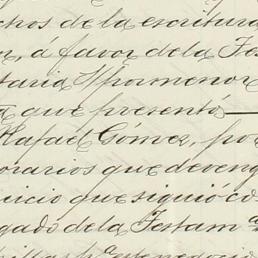 chos de la escritura
n, á favor de la Tes
taria S/ pormenor
a que presentó
Rafael Gómez, po
orarios que deveng
uicio que siguió co
gado de la Testam
este negocio